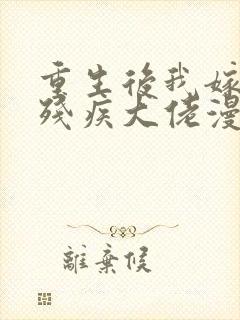 重生後我嫁
殘疾大佬漫
離棄侯